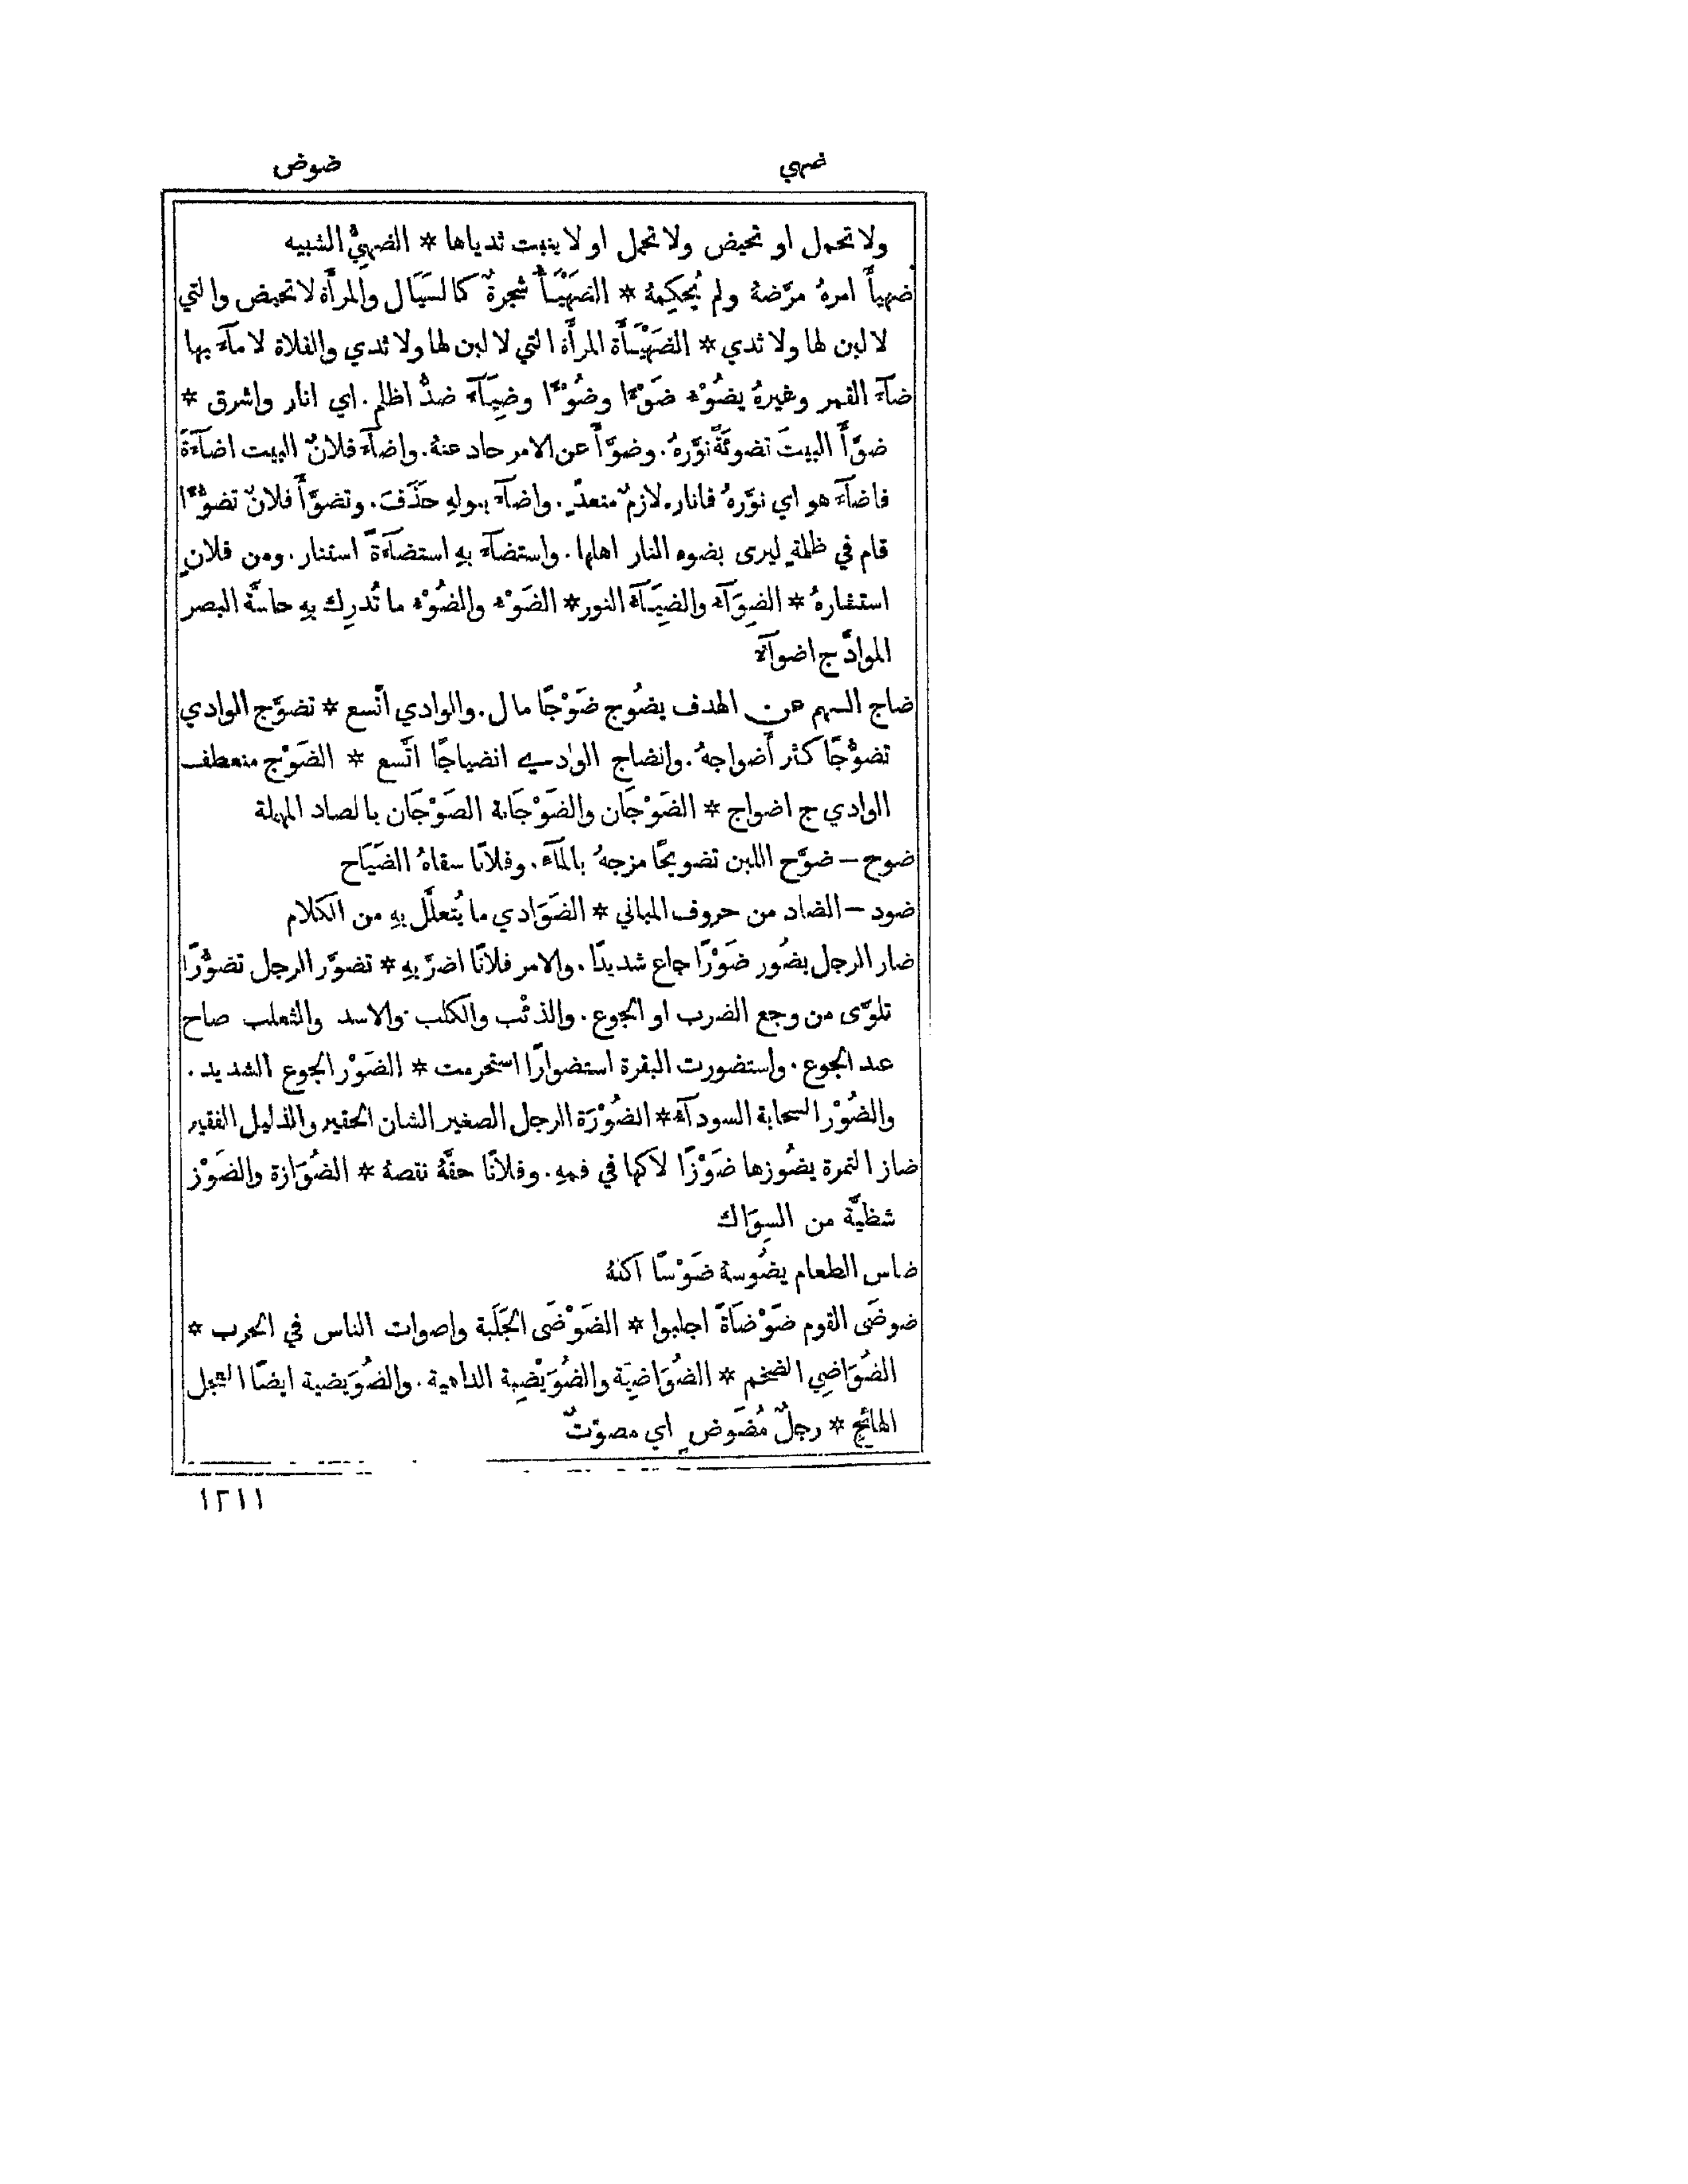 ضهي ضوض
ولا تحمل او تحيض ولا تحمل او لا ينبت ثدياها * الضهيُّ الشبيه
ضهيأَ امرهُ مرَّضهُ ولم يُحكِمهُ * الضَهْيَأُ شجرةٌ كالسَيَال والمرأَة لا تحيض والتي
لا لبن لها ولا ثدي * الضَهْيَأَة المرأَة التي لا لبن لها ولا ثدي والفلاة لا مآءَ بها
ضآءَ القمر وغيرهُ يضُوْء ضَوْءًا وضُوْءًا وضِيَآءً ضدُّ اظلم. اي انار واشرق *
ضوَّأَ البيتَ تضوئَةً نوَّرهُ. وضوَّأَ عن الامر حاد عنهُ. واضآءَ فلانٌ البيت اضآءَةً
فاضآءَ هو اي نوَّرهُ فانار. لازمٌ متعدٍّ. واضآءَ ببولهِ حَذَفَ. وتضوَّأَ فلانٌ تضوُّءًا
قام في ظلمةٍ ليرى بضوء النار اهلها. واستضآءَ بهِ استضآءَةً استنار. ومن فلانٍ
استشارهُ * الضِوَآء والضِيَآء النور * الضَوْء والضُوْء ما تُدرِك بهِ حاسَّة البصر
الموادَّ ج اضوآء
ضاج السهم عن الهدف يضُوج ضَوْجًا مال. والوادي اتَّسع * تضوَّج الوادي
تضوُّجًا كثر أَضواجهُ. وانضاج الوادي انضياجًا اتَّسع * الضَوْج منعطف
الوادي ج اضواج * الضَوْجَان والضَوْجَانة الصَوْجَان بالصاد المهملة
ضوح – ضوَّح اللبن تضويحًا مزجهُ بالمآء. وفلانًا سقاهُ الضَيَاح
ضود – الضاد من حروف المباني * الضَوَادي ما يُتعلَّل بهِ من الكلام
ضار الرجل يضُور ضَوْرًا جاع شديدًا. والامر فلانًا اضرَّ بهِ * تضوَّر الرجل تضوُّرًا
تلوَّى من وجع الضرب او الجوع. والذئْب والكلب والاسد والثعلب صاح
عند الجوع. واستضورت البقرة استضوارًا استحرمت * الضَوْر الجوع الشديد.
والضُوْر السحابة السودآء * الضُوْرَة الرجل الصغير الشان الحقير والذليل الفقير
ضاز التمرة يضُوزها ضَوْزًا لآكها في فمهِ. وفلانًا حقَّهُ نقصهُ * الضُوَازة والضَوْز
شظيَّة من السِوَاك
ضاس الطعام يضُوسهُ ضَوْسًا اكلهُ
ضوضَى القوم ضَوْضَاةً اجلبوا * الضَوْضَى الجَلَبة واصوات الناس في الحرب *
الضُوَاضِي الضخم * الضُوَاضِيَة والضُوَيْضِية الداهية. والضُوَيضية ايضًا الفحل
الهائج * رجلٌ مُضَوضٍ اي مصوّتٌ
١٢١١